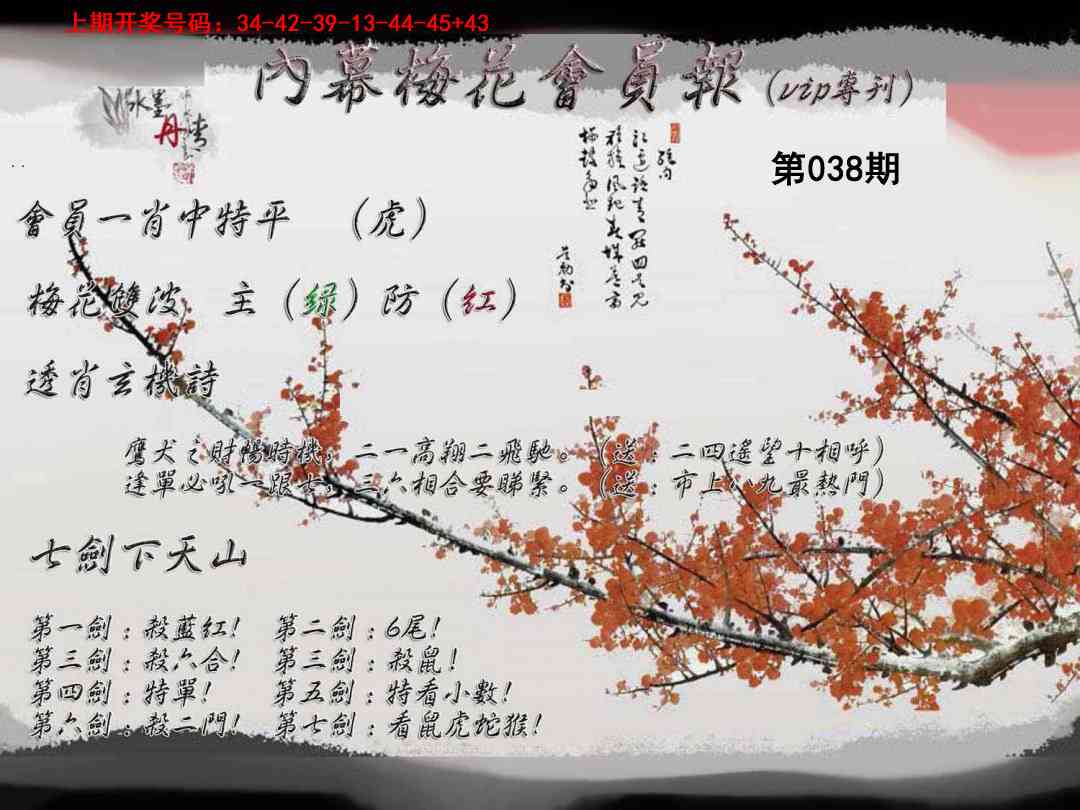 上期开奖号码：34-42-39-13-44-45+43
內幕梅花會員報（vip專刊）
水墨
丹青
第038期
會員一肖中特平 （虎）
梅花雙波 主（绿）防（红）
透肖玄機詩
鷹犬之財暢時機，二一高翔二飛馳。（送：二四遙望十相呼）
逢單必吼一跟七，三六相合要睇緊。（送：市上八九最熱門）
七劍下天山
第一劍：殺藍紅！ 第二劍：6尾！
第三劍：殺六合！ 第三劍：殺鼠！
第四劍：特單！ 第五劍：特看小數！
第六劍：殺二門！ 第七劍：看鼠虎蛇猴！